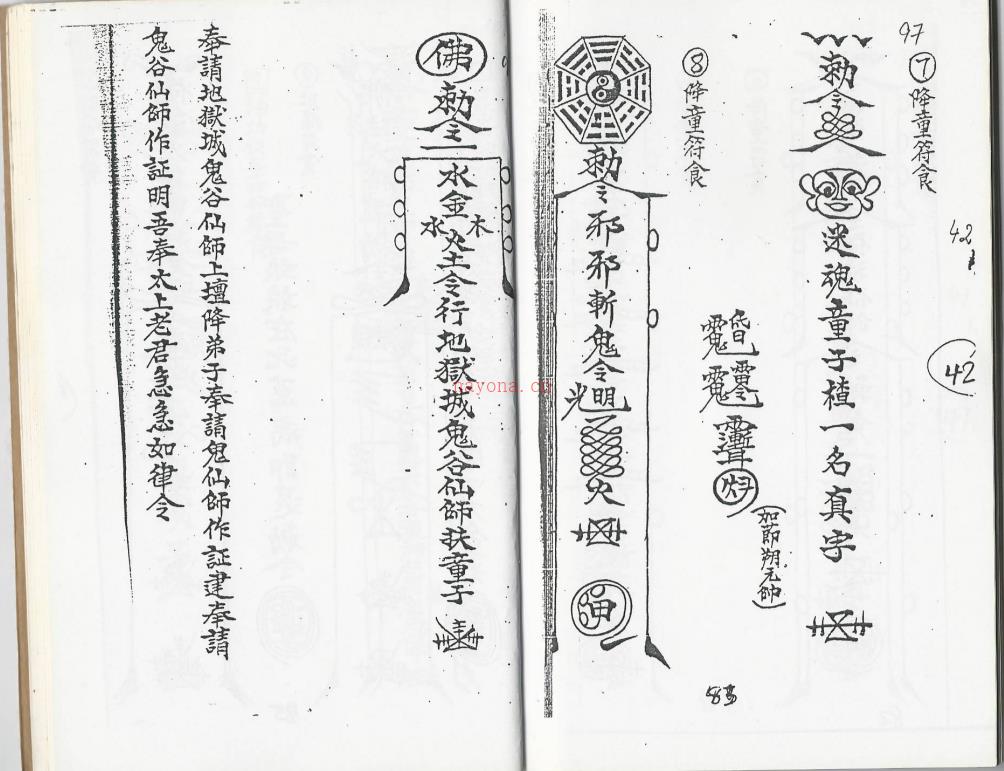 97
⑦降童符食
勅令
迷魂童子楂一名真字
42
42
(如節翔元帥)
⑧降童符食
勅令邪邪斬鬼令明光火
83
佛勅令
水金木水火土令行地獄城鬼谷仙師扶童子
奉請地獄城鬼谷仙師上壇降弟子奉請鬼仙師作証建奉請
鬼谷仙師作証明吾奉太上老君急急如律令
nayona.cn